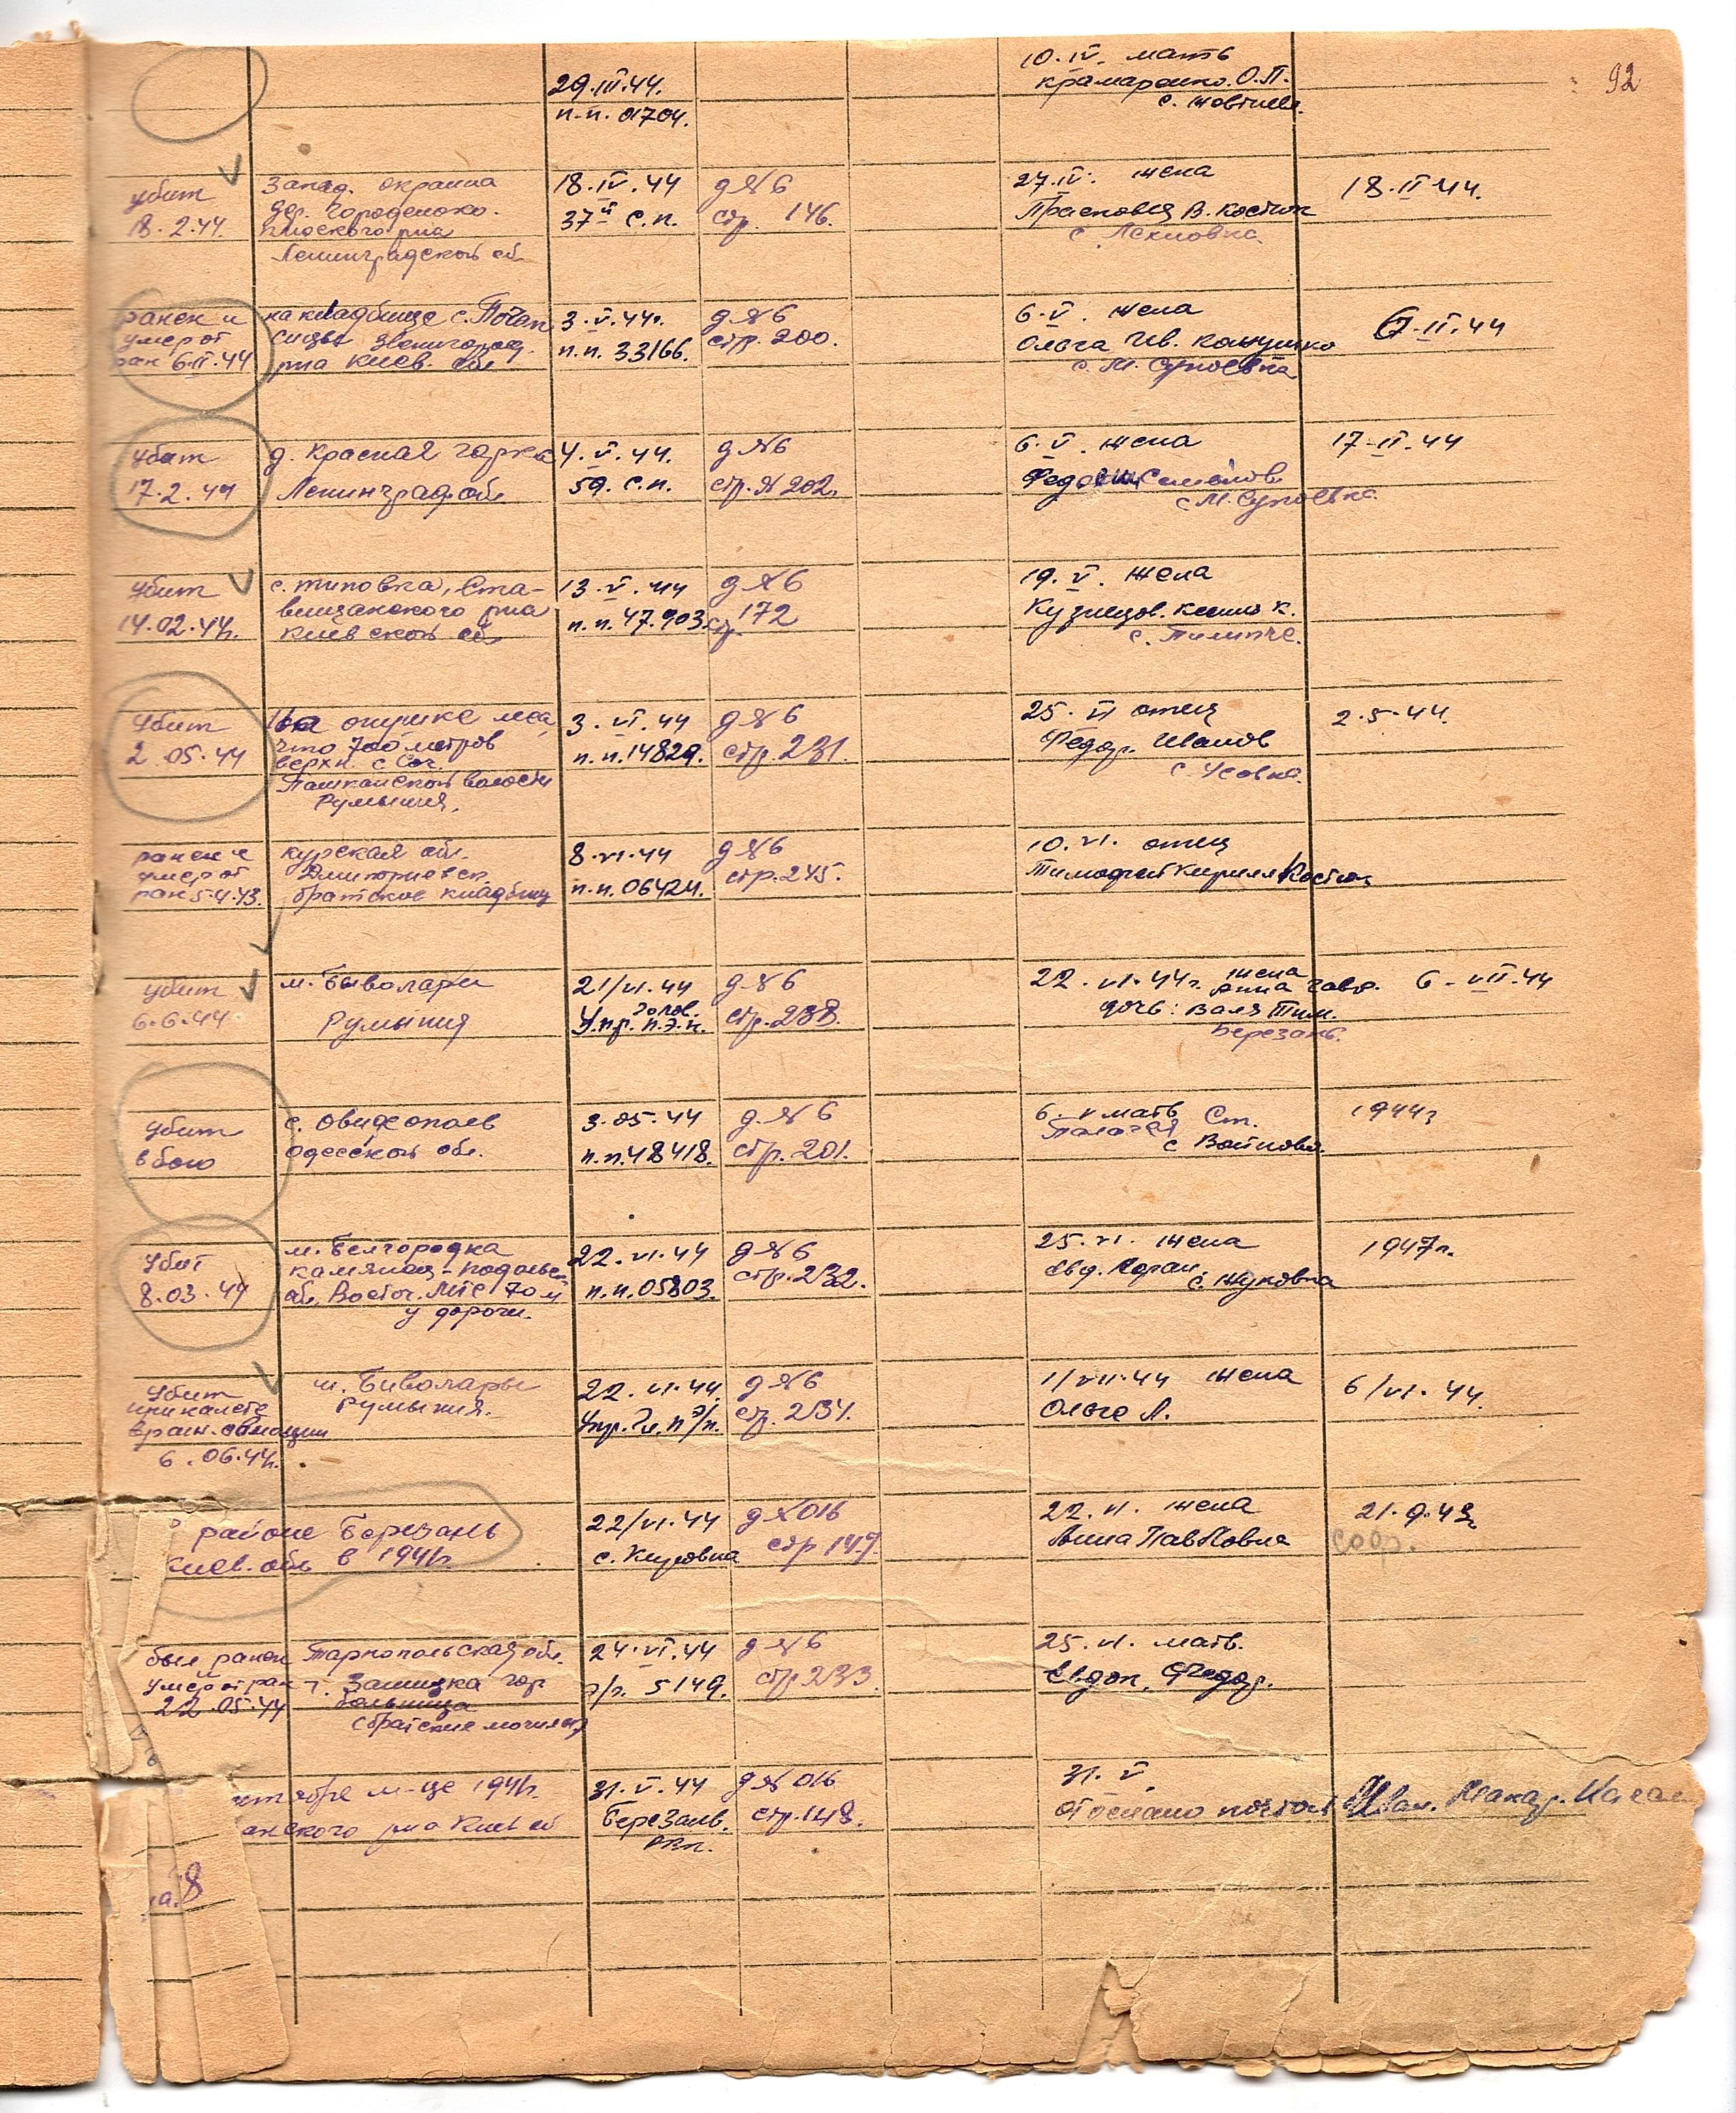 92
29.III.44.
п-п. 01704.
10.IV. мать
Крамаренко О.П.
с.
убит
18.2.44.
Запад. окраина
дер.
района
Ленинградской об
18.IV.44
37й с.п.
д №6
стр. 146.
27.IV. жена
Прасковья В. Костюк
с. Лехновка.
18.II.44.
ранен и
умер от
ран 6.II.44
на кладбище с. Почап
синцы Звенигород.
р-на Киев. обл
3.V.44г.
п.п. 33166.
д №6
стр. 200.
6.V. жена
Ольга Ив.
с. М. Супоевка
6.II.44
убит
17.2.44
д. Красная горка
Ленинград обл
4.V.44.
59. с.п.
д №6
стр. № 202.
6.V. жена
с М. Супоевка
17-II.44
убит
14.02.44г.
с. Типовка, Ста-
вищанского р-на
Киевской об
13.V.44
п.п. 47.903.
д №6
стр. 172
19.V. жена
Кузнецов.
с. Пилипче.
убит
2.05.44
На опушке леса
что 700 метров
верхн. с.
Пашканской волости
Румыния.
3.VI.44
п.п. 14829.
д №6
стр. 231.
25.VI отец
Федор. Иванов
с. Усовка.
2.5.44.
ранен и
умер от
ран 5.4.43.
курская обл.
Дмитриевск.
братское кладбищ
8.VI.44
п.п. 06424.
д №6
стр. 245.
10.VI. отец
Тимофей Кирилл Костюк
убит
6.6.44.
м. Биволари
Румыния
21/VI.44
Упр. п.э.п.
д №6
стр. 238.
22.VI.44г. жена
Анна Гавр.
дочь: Валя Тим.
Березань.
6-VII.44
убит
в бою
с. Овидеополев
одесской обл.
3.05.44
п.п. 48418.
д. №6
стр. 201.
6.V мать Ст.
Палагея
с Войтовка.
1944г
убит
8.03.44
м. Белгородка
Камянец-Подольск
об. Восточ. МТС 70 м
у дороги.
22.VI.44
п.п. 05803.
д №6
стр. 232.
25.VI. жена
Евд.
с. Жуковка
1947г.
убит
при налете
враж. авиации
6.06.44г.
м. Биволары
Румыния.
22.VI.44.
Упр. Гл. п э/п.
д №6
стр. 234.
1/VII.44 жена
Ольге Л.
6/VI.44.
районе Березань
Киев. обл в 1941г.
22/VI.44
с.
д №016
стр 149.
22.VI. жена
Анна Павловна
21.9.43г
был ранен
умер от ран
22.05.44
Тарнопольская обл.
г. гор
больница
(братские могилы)
24.VI.44
э/г. 5149.
д №6
стр 233
25.VI. мать.
Евдок. Федор.
октябре м-це 1941г.
анского р-на Киев об
31.V.44
Березанв.
РВК.
д № 016
стр. 148.
31.V.
отослано почтой Иван. Макар.
на. 8